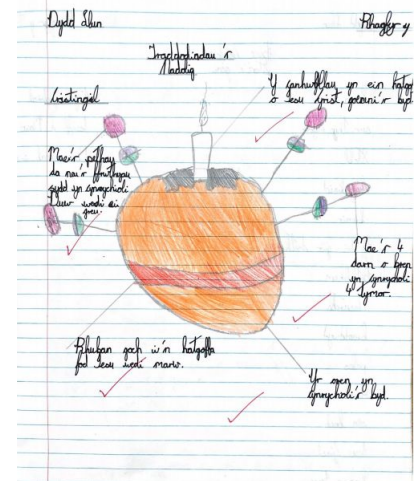 Dydd Llun
Rhagfyr 4
Traddodiadau'r
Nadolig
Cristingl
Y canhwyllau yn ein hatgof
o Iesu Grist, goleuni'r byd.
Mae'r pethau
da na'r ffrwythau
sydd yn cynrychioli
Duw wedi ei
greu.
Mae'r 4
darn o bren
yn cynrychioli
4 tymor.
Rhuban goch i'n hatgoffa
fod Iesu wedi marw.
Yr oren yn
cynrychioli'r byd.